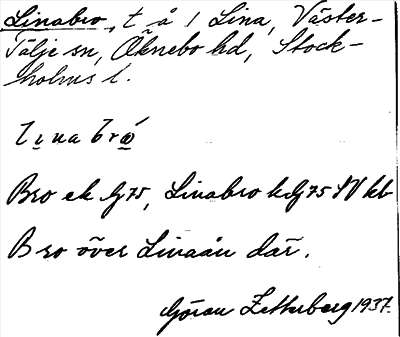 Linabro, t å i Lina, Väster-
Tälje sn, Öknebo hd, Stock-
holms l.
Bro ek G75, Linabro k G75 SV kb
Bro över Linaån där.
Göran Zetterberg 1937.